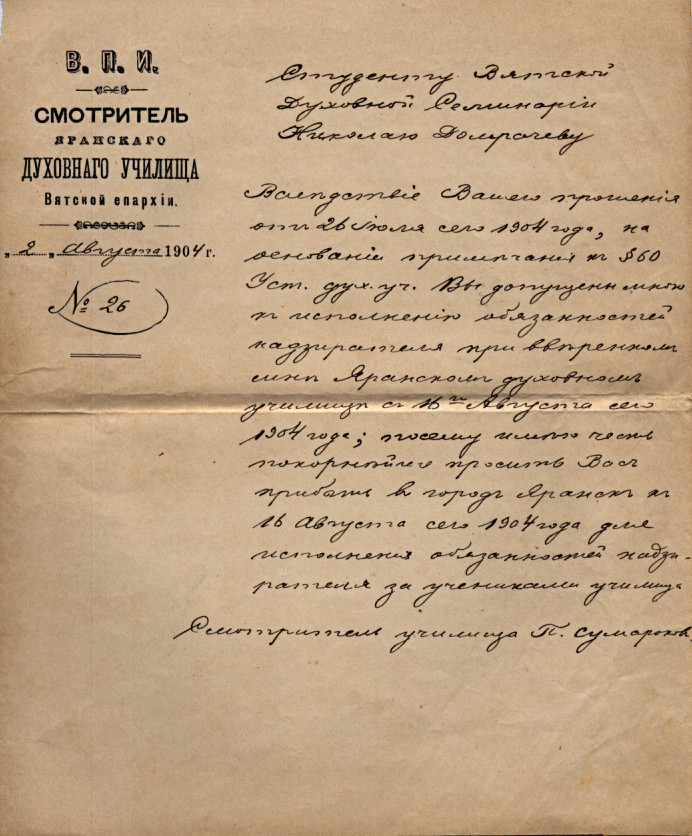 В. П. И.
СМОТРИТЕЛЬ
ЯРАНСКАГО
ДУХОВНАГО УЧИЛИЩА
Вятской епархіи.
„ 2 „ Августа 1904 г.
№ 26
Студенту Вятской
Духовной Семинаріи
Николаю Домрачеву
Вслѣдствіе Вашего прошенія
отъ 26 Іюля сего 1904 года, на
основаніи примѣчанія къ § 60
Уст. дух. уч. Вы допущены мною
къ исполненію обязанностей
надзирателя при ввѣренномъ
мнѣ Яранскомъ духовномъ
училищѣ съ 16го Августа сего
1904 года; посему имѣю честь
покорнѣйше просить Васъ
прибыть въ городъ Яранскъ къ
16 Августа сего 1904 года для
исполненія обязанностей надзи-
рателя за учениками училища
Смотритель училища П. Сумароковъ